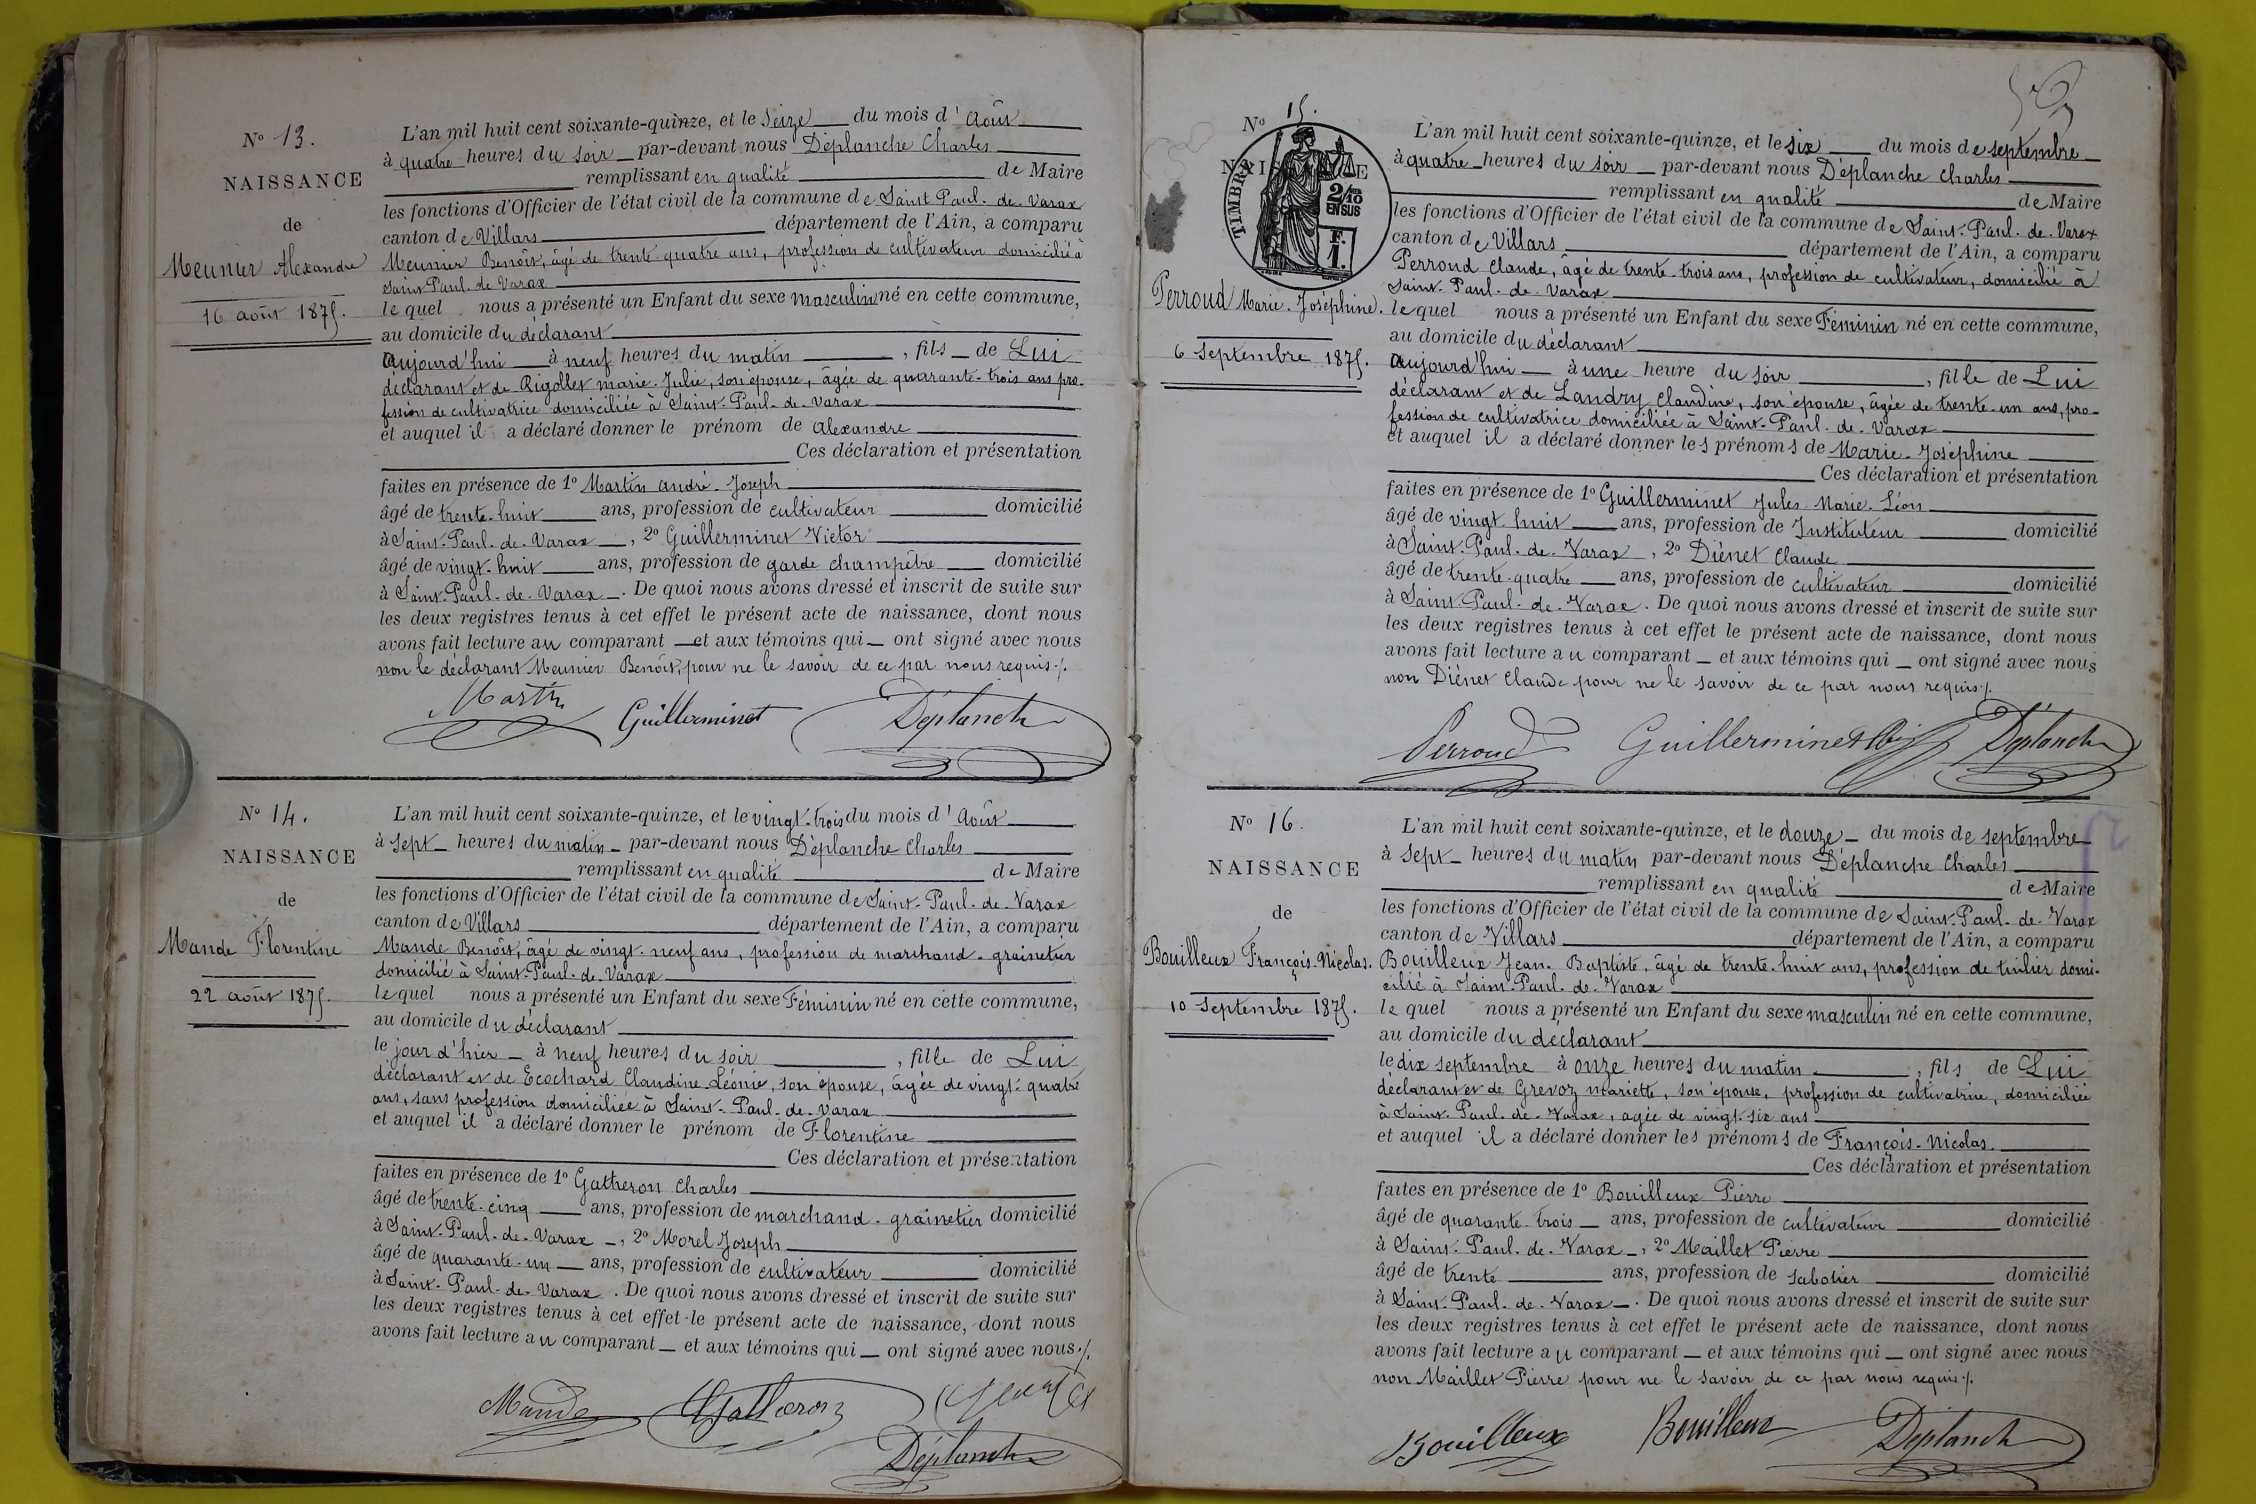 N° 13.
NAISSANCE
de
Meunier Alexandre
16 août 1875.
L'an mil huit cent soixante-quinze, et le Seize du mois d' Août
à quatre heures du soir par-devant nous Déplanche Charles
remplissant en qualité de Maire
les fonctions d'Officier de l'état civil de la commune de Saint-Paul-de-Varax
canton de Villars département de l'Ain, a comparu
Meunier Benoit, âgé de trente-quatre ans, profession de cultivateur domicilié à
Saint-Paul-de-Varax
lequel nous a présenté un Enfant du sexe masculin né en cette commune,
au domicile du déclarant
aujourd'hui à neuf heures du matin, fils de Lui
déclarant et de Rigollet marie-Julie, son épouse, âgée de quarante-trois ans pro-
fession de cultivatrice domiciliée à Saint-Paul-de-Varax
et auquel il a déclaré donner le prénom de Alexandre
Ces déclaration et présentation
faites en présence de 1° Martin andré-Joseph
âgé de trente-huit ans, profession de cultivateur domicilié
à Saint-Paul-de-Varax, 2° Guillerminet Victor
âgé de vingt-huit ans, profession de garde champêtre domicilié
à Saint-Paul-de-Varax. De quoi nous avons dressé et inscrit de suite sur
les deux registres tenus à cet effet le présent acte de naissance, dont nous
avons fait lecture au comparant et aux témoins qui ont signé avec nous
non le déclarant Meunier Benoit, pour ne le savoir de ce par nous requis./.
Martin Guillerminet Déplanche
N° 14.
NAISSANCE
de
Mande Florentine
22 août 1875.
L'an mil huit cent soixante-quinze, et le vingt-trois du mois d' Août
à sept heures du matin par-devant nous Déplanche Charles
remplissant en qualité de Maire
les fonctions d'Officier de l'état civil de la commune de Saint-Paul-de-Varax
canton de Villars département de l'Ain, a comparu
Mande Benoit, âgé de vingt-neuf ans, profession de marchand-grainetier
domicilié à Saint-Paul-de-Varax
lequel nous a présenté un Enfant du sexe Féminin né en cette commune,
au domicile du déclarant
le jour d'hier à neuf heures du soir, fille de Lui
déclarant et de Ecochard Claudine-Léonie, son épouse, âgée de vingt-quatre
ans, sans profession domiciliée à Saint-Paul-de-Varax
et auquel il a déclaré donner le prénom de Florentine
Ces déclaration et présentation
faites en présence de 1° Gatheron Charles
âgé de trente-cinq ans, profession de marchand-grainetier domicilié
à Saint-Paul-de-Varax, 2° Morel Joseph
âgé de quarante-un ans, profession de cultivateur domicilié
à Saint-Paul-de-Varax. De quoi nous avons dressé et inscrit de suite sur
les deux registres tenus à cet effet le présent acte de naissance, dont nous
avons fait lecture au comparant et aux témoins qui ont signé avec nous./.
Mande Gatheron
Déplanche
N° 15.
NAIS E
TIMBRE
2/10 EN SUS
F. 1.
Perroud Marie-Joséphine.
6 Septembre 1875.
L'an mil huit cent soixante-quinze, et le six du mois de septembre
à quatre heures du soir par-devant nous Déplanche Charles
remplissant en qualité de Maire
les fonctions d'Officier de l'état civil de la commune de Saint-Paul-de-Varax
canton de Villars département de l'Ain, a comparu
Perroud Claude, âgé de trente-trois ans, profession de cultivateur, domicilié à
Saint-Paul-de-Varax
lequel nous a présenté un Enfant du sexe Féminin né en cette commune,
au domicile du déclarant
aujourd'hui à une heure du soir, fille de Lui
déclarant et de Landry Claudine, son épouse, âgée de trente-un ans, pro-
fession de cultivatrice domiciliée à Saint-Paul-de-Varax
et auquel il a déclaré donner les prénoms de Marie-Joséphine
Ces déclaration et présentation
faites en présence de 1° Guillerminet Jules-Marie-Léon
âgé de vingt-huit ans, profession de Instituteur domicilié
à Saint-Paul-de-Varax, 2° Diénet Claude
âgé de trente-quatre ans, profession de cultivateur domicilié
à Saint-Paul-de-Varax. De quoi nous avons dressé et inscrit de suite sur
les deux registres tenus à cet effet le présent acte de naissance, dont nous
avons fait lecture au comparant et aux témoins qui ont signé avec nous
non Diénet Claude pour ne le savoir de ce par nous requis./.
Perroud Guillerminet Déplanche
N° 16.
NAISSANCE
de
Bouilleux François-Nicolas.
10 Septembre 1875.
L'an mil huit cent soixante-quinze, et le douze du mois de septembre
à sept heures du matin par-devant nous Déplanche Charles
remplissant en qualité de Maire
les fonctions d'Officier de l'état civil de la commune de Saint-Paul-de-Varax
canton de Villars département de l'Ain, a comparu
Bouilleux Jean-Baptiste, âgé de trente-huit ans, profession de tuilier domi-
cilié à Saint-Paul-de-Varax
lequel nous a présenté un Enfant du sexe masculin né en cette commune,
au domicile du déclarant
le dix septembre à onze heures du matin, fils de Lui
déclarant et de Grevoz mariette, son épouse, profession de cultivatrice, domiciliée
à Saint-Paul-de-Varax, âgée de vingt-six ans
et auquel il a déclaré donner les prénoms de François-Nicolas.
Ces déclaration et présentation
faites en présence de 1° Bouilleux Pierre
âgé de quarante-trois ans, profession de cultivateur domicilié
à Saint-Paul-de-Varax, 2° Maillet Pierre
âgé de trente ans, profession de sabotier domicilié
à Saint-Paul-de-Varax. De quoi nous avons dressé et inscrit de suite sur
les deux registres tenus à cet effet le présent acte de naissance, dont nous
avons fait lecture au comparant et aux témoins qui ont signé avec nous
non Maillet Pierre pour ne le savoir de ce par nous requis./.
Bouilleux Bouilleux Déplanche